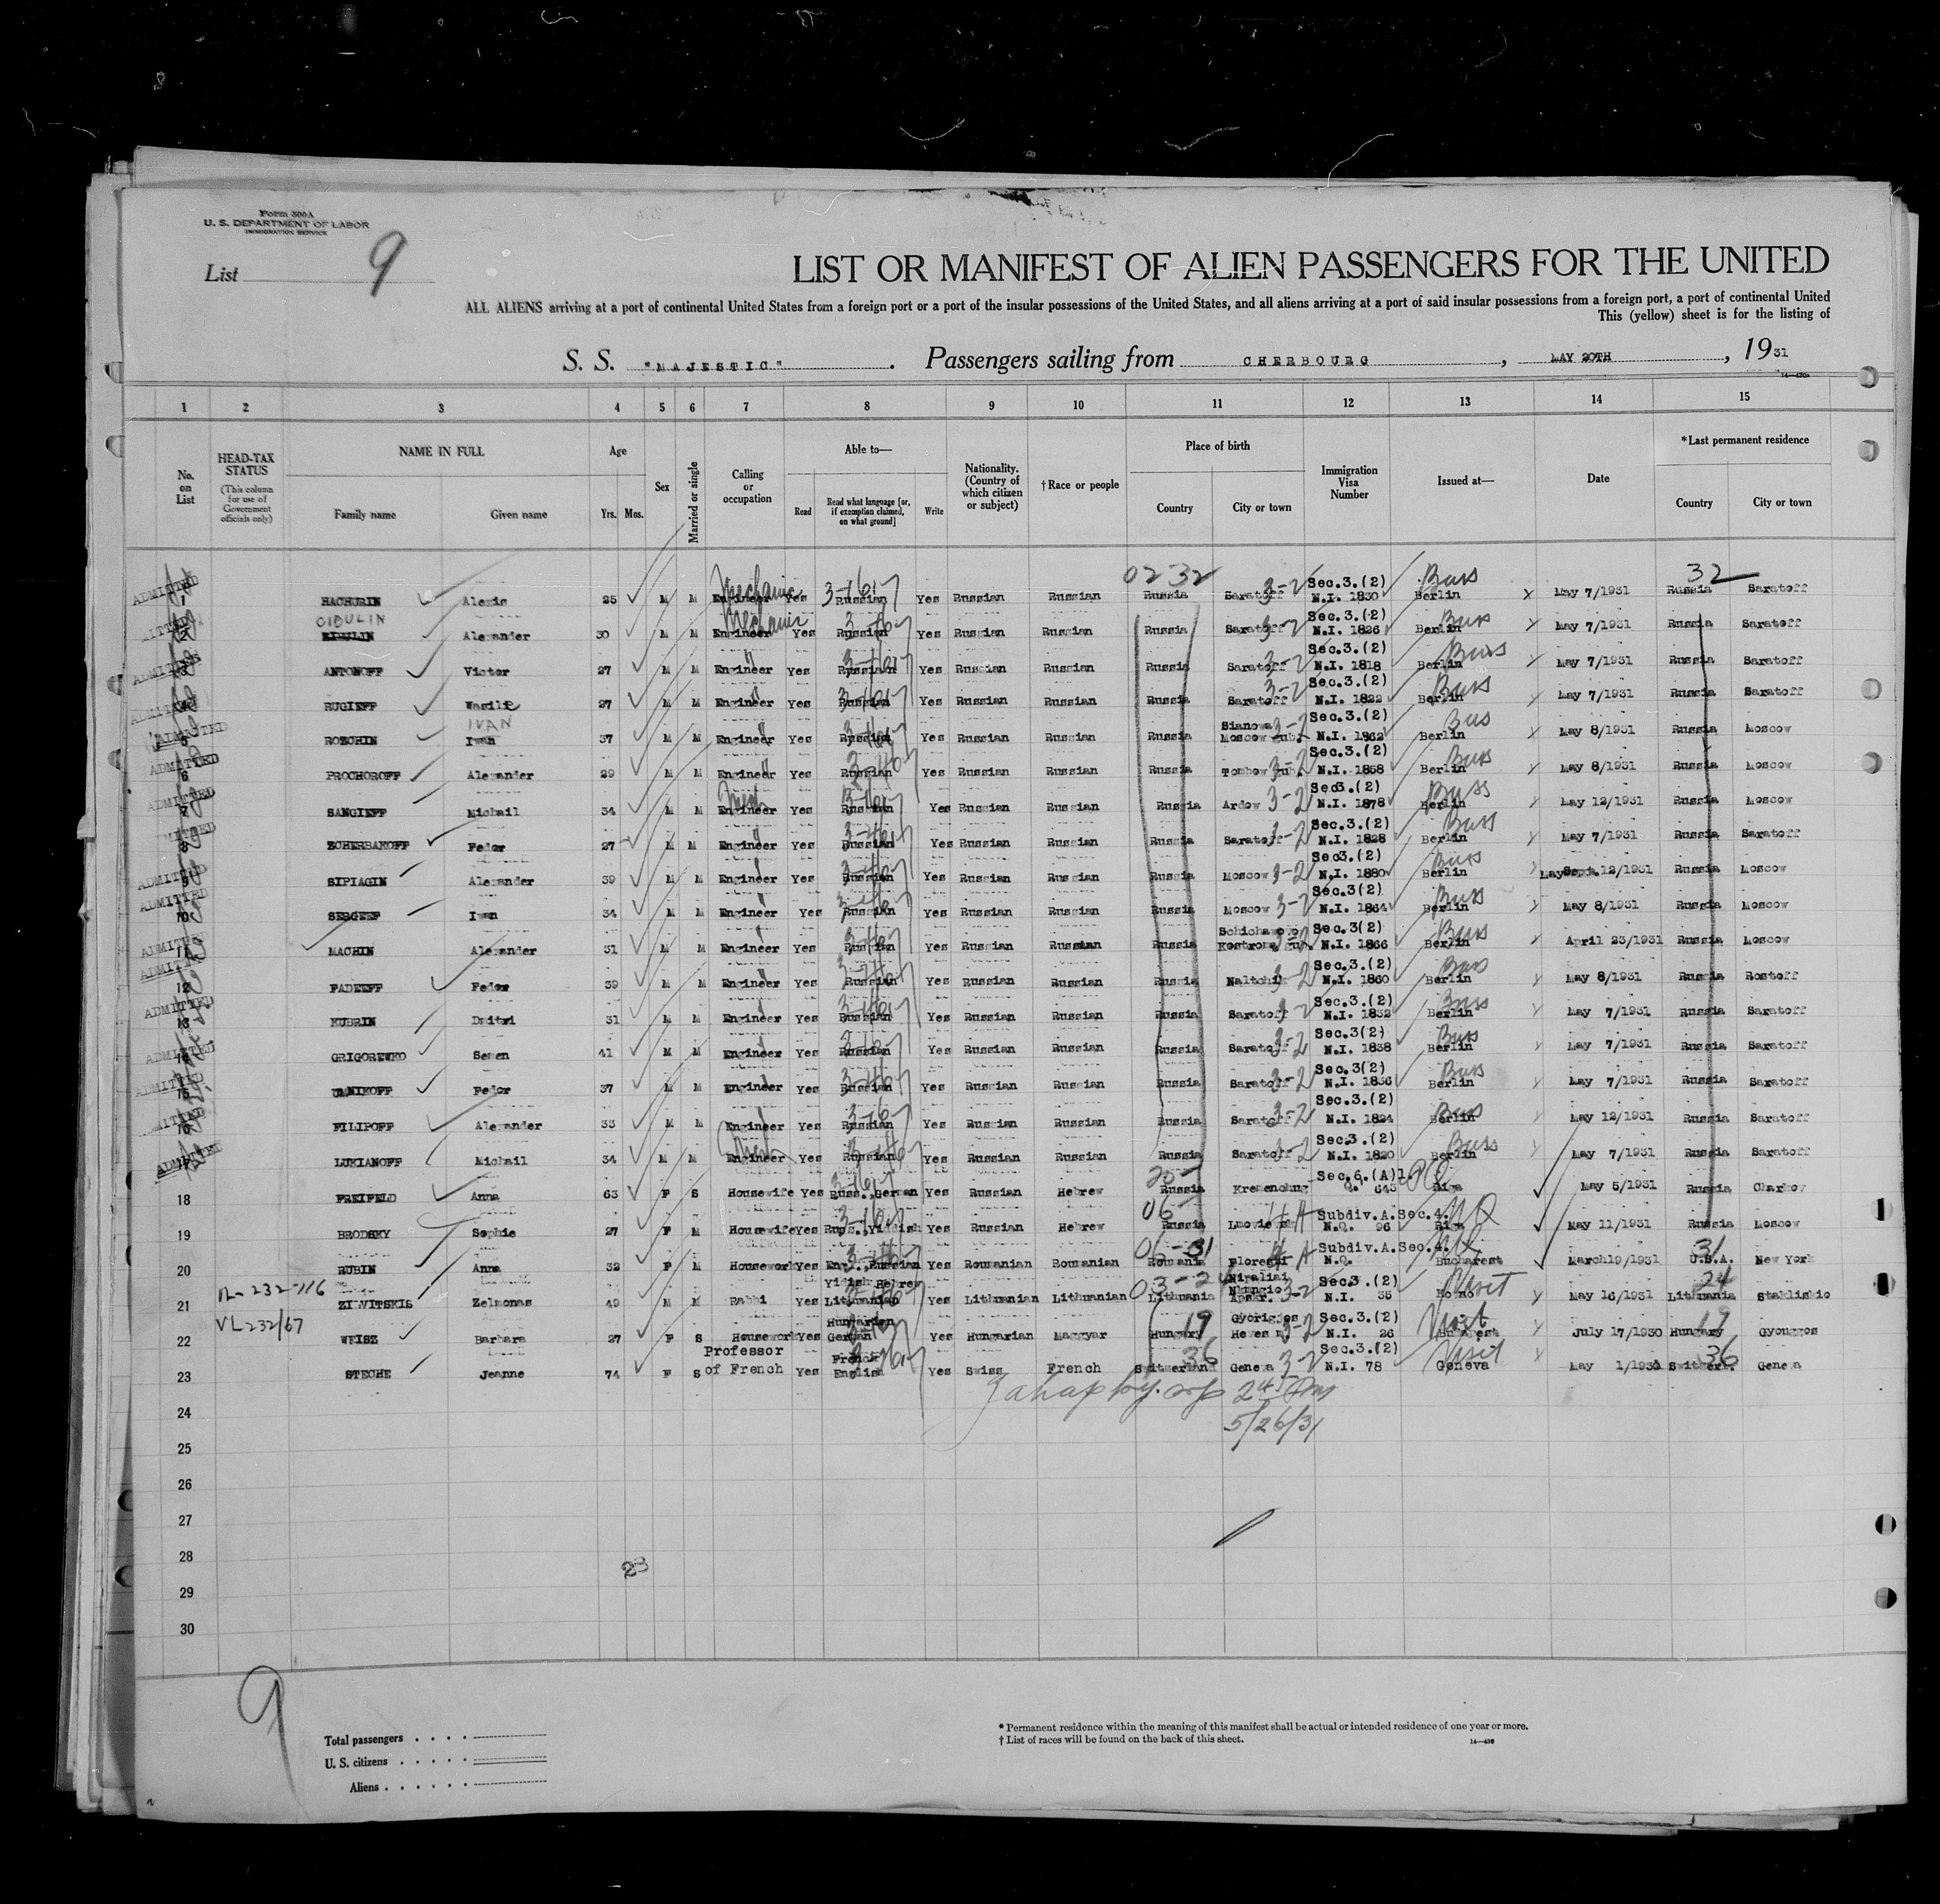 Form 500A
U. S. DEPARTMENT OF LABOR
IMMIGRATION SERVICE
List 9
LIST OR MANIFEST OF ALIEN PASSENGERS FOR THE UNITED
ALL ALIENS arriving at a port of continental United States from a foreign port or a port of the insular possessions of the United States, and all aliens arriving at a port of said insular possessions from a foreign port, a port of continental United
This (yellow) sheet is for the listing of
S. S. "MAJESTIC". Passengers sailing from CHERBOURG, MAY 20TH, 1931
1 2 3 4 5 6 7 8 9 10 11 12 13 14 15
No. on List
HEAD-TAX STATUS (This column for use of Government officials only)
NAME IN FULL Family name Given name
Age Yrs. Mos.
Sex
Married or single
Calling or occupation
Able to— Read Read what language [or, if exemption claimed, on what ground] Write
Nationality. (Country of which citizen or subject)
†Race or people
Place of birth Country City or town
Immigration Visa Number
Issued at—
Date
*Last permanent residence Country City or town
0232 32
ADMITTED 1 HACHURIN Alexis 25 M M Engineer Mechanic Yes Russian Yes Russian Russian Russia Saratoff 3-2 Sec.3.(2) N.I. 1830 Berlin Buss May 7/1931 Russia Saratoff
CIBULIN Alexander 30 M M Engineer Mechanic Yes Russian Yes Russian Russian Russia Saratoff 3-2 Sec.3.(2) N.I. 1826 Berlin Buss May 7/1931 Russia Saratoff
ADMITTED ANTONOFF Victor 27 M M Engineer " Yes Russian Yes Russian Russian Russia Saratoff 3-2 Sec.3.(2) N.I. 1818 Berlin Buss May 7/1931 Russia Saratoff
ADMITTED RUGIEFF Wasilie 27 M M Engineer " Yes Russian Yes Russian Russian Russia Saratoff 3-2 Sec.3.(2) N.I. 1822 Berlin Buss May 7/1931 Russia Saratoff
IVAN
ADMITTED 5 ROZCHIN Iwan 37 M M Engineer " Yes Russian Yes Russian Russian Russia Sianowa Moscow Gub. 3-2 Sec.3.(2) N.I. 1862 Berlin Bus May 8/1931 Russia Moscow
ADMITTED 6 PROCHOROFF Alexander 29 M M Engineer " Yes Russian Yes Russian Russian Russia Tombow Gub. 3-2 Sec.3.(2) N.I. 1858 Berlin Buss May 8/1931 Russia Moscow
ADMITTED 7 SANGIEFF Michail 34 M M Engineer Yes Russian Yes Russian Russian Russia Ardow 3-2 Sec3.(2) N.I. 1878 Berlin Buss May 12/1931 Russia Moscow
ADMITTED 8 ZCHERBAKOFF Fedor 27 M M Engineer Yes Russian Yes Russian Russian Russia Saratoff 3-2 Sec.3.(2) N.I. 1828 Berlin Buss May 7/1931 Russia Saratoff
ADMITTED 9 SIPIAGIN Alexander 39 M M Engineer Yes Russian Yes Russian Russian Russia Moscow 3-2 Sec3.(2) N.I. 1880 Berlin Buss May 12/1931 Russia Moscow
ADMITTED 10 SERGEEF Iwan 34 M M Engineer Yes Russian Yes Russian Russian Russia Moscow 3-2 Sec.3(2) N.I. 1864 Berlin Buss May 8/1931 Russia Moscow
ADMITTED 11 MACHIN Alexander 31 M M Engineer Yes Russian Yes Russian Russian Russia Kostroma Gub. Sec.3(2) N.I. 1866 Berlin Buss April 23/1931 Russia Moscow
ADMITTED 12 FADEEFF Fedor 39 M M Engineer Yes Russian Yes Russian Russian Russia Naltchik 3-2 Sec.3.(2) N.I. 1860 Berlin Buss May 8/1931 Russia Rostoff
ADMITTED 13 KUBRIN Dmitri 31 M M Engineer Yes Russian Yes Russian Russian Russia Saratoff 3-2 Sec.3.(2) N.I. 1832 Berlin Buss May 7/1931 Russia Saratoff
ADMITTED 14 GRIGOREWKO Semen 41 M M Engineer Yes Russian Yes Russian Russian Russia Saratoff 3-2 Sec.3(2) N.I. 1838 Berlin Buss May 7/1931 Russia Saratoff
ADMITTED 15 Fedor 37 M M Engineer Yes Russian Yes Russian Russian Russia Saratoff 3-2 Sec.3(2) N.I. 1836 Berlin Buss May 7/1931 Russia Saratoff
ADMITTED 16 FILIPOFF Alexander 33 M M Engineer Yes Russian Yes Russian Russian Russia Saratoff 3-2 Sec.3.(2) N.I. 1824 Berlin Buss May 12/1931 Russia Saratoff
ADMITTED LUKIANOFF Michail 34 M M Engineer Yes Russian Yes Russian Russian Russia Saratoff 3-2 Sec3.(2) N.I. 1820 Berlin Buss May 7/1931 Russia Saratoff
18 FREIFELD Anna 63 F S Housewife Yes Russ.,German Yes Russian Hebrew Russia Kremenchug Sec.6.(A)1. Q. 643 Riga May 5/1931 Russia Charkov
19 BRODSKY Sophie 27 F M Housewife Yes Russ.,Yiddish Yes Russian Hebrew Russia Subdiv.A.Sec.4. N.Q. 96 Riga NQ May 11/1931 Russia Moscow
20 RUBIN Anna 32 F M Housework Yes Engl.,Russian Yes Roumanian Roumanian Romania Floresti Subdiv.A.Sec.4. N.Q. Bucharest March19/1931 U.S.A. New York
21 ZIWVITSKIS Zelmonas 49 M M Rabbi Yes Yidish Hebrew Lithuanian Yes Lithuanian Lithuanian Lithuania Sec3.(2) N.I. 35 Kovno Visit May 16/1931 Lithuania Stakliskio
VL232/67
22 WEISZ Barbara 27 F S Housework Yes Hungarian German Yes Hungarian Magyar Hungary Heves 3-2 Sec.3.(2) N.I. 26 Budapest Visit July 17/1930 Hungary
23 STECHE Jeanne 74 F S Professor of French Yes French English Yes Swiss French Switzerland Geneva 3-2 Sec.3.(2) N.I. 78 Geneva Visit May 1/1931 Switzerl. Geneva
24
5/26/31
25
26
27
28
23
29
30
9
Total passengers
U. S. citizens
Aliens
* Permanent residence within the meaning of this manifest shall be actual or intended residence of one year or more.
† List of races will be found on the back of this sheet.